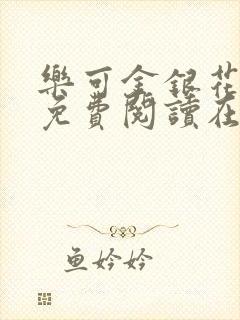 樂可金銀花
免費閱讀在
魚妗妗